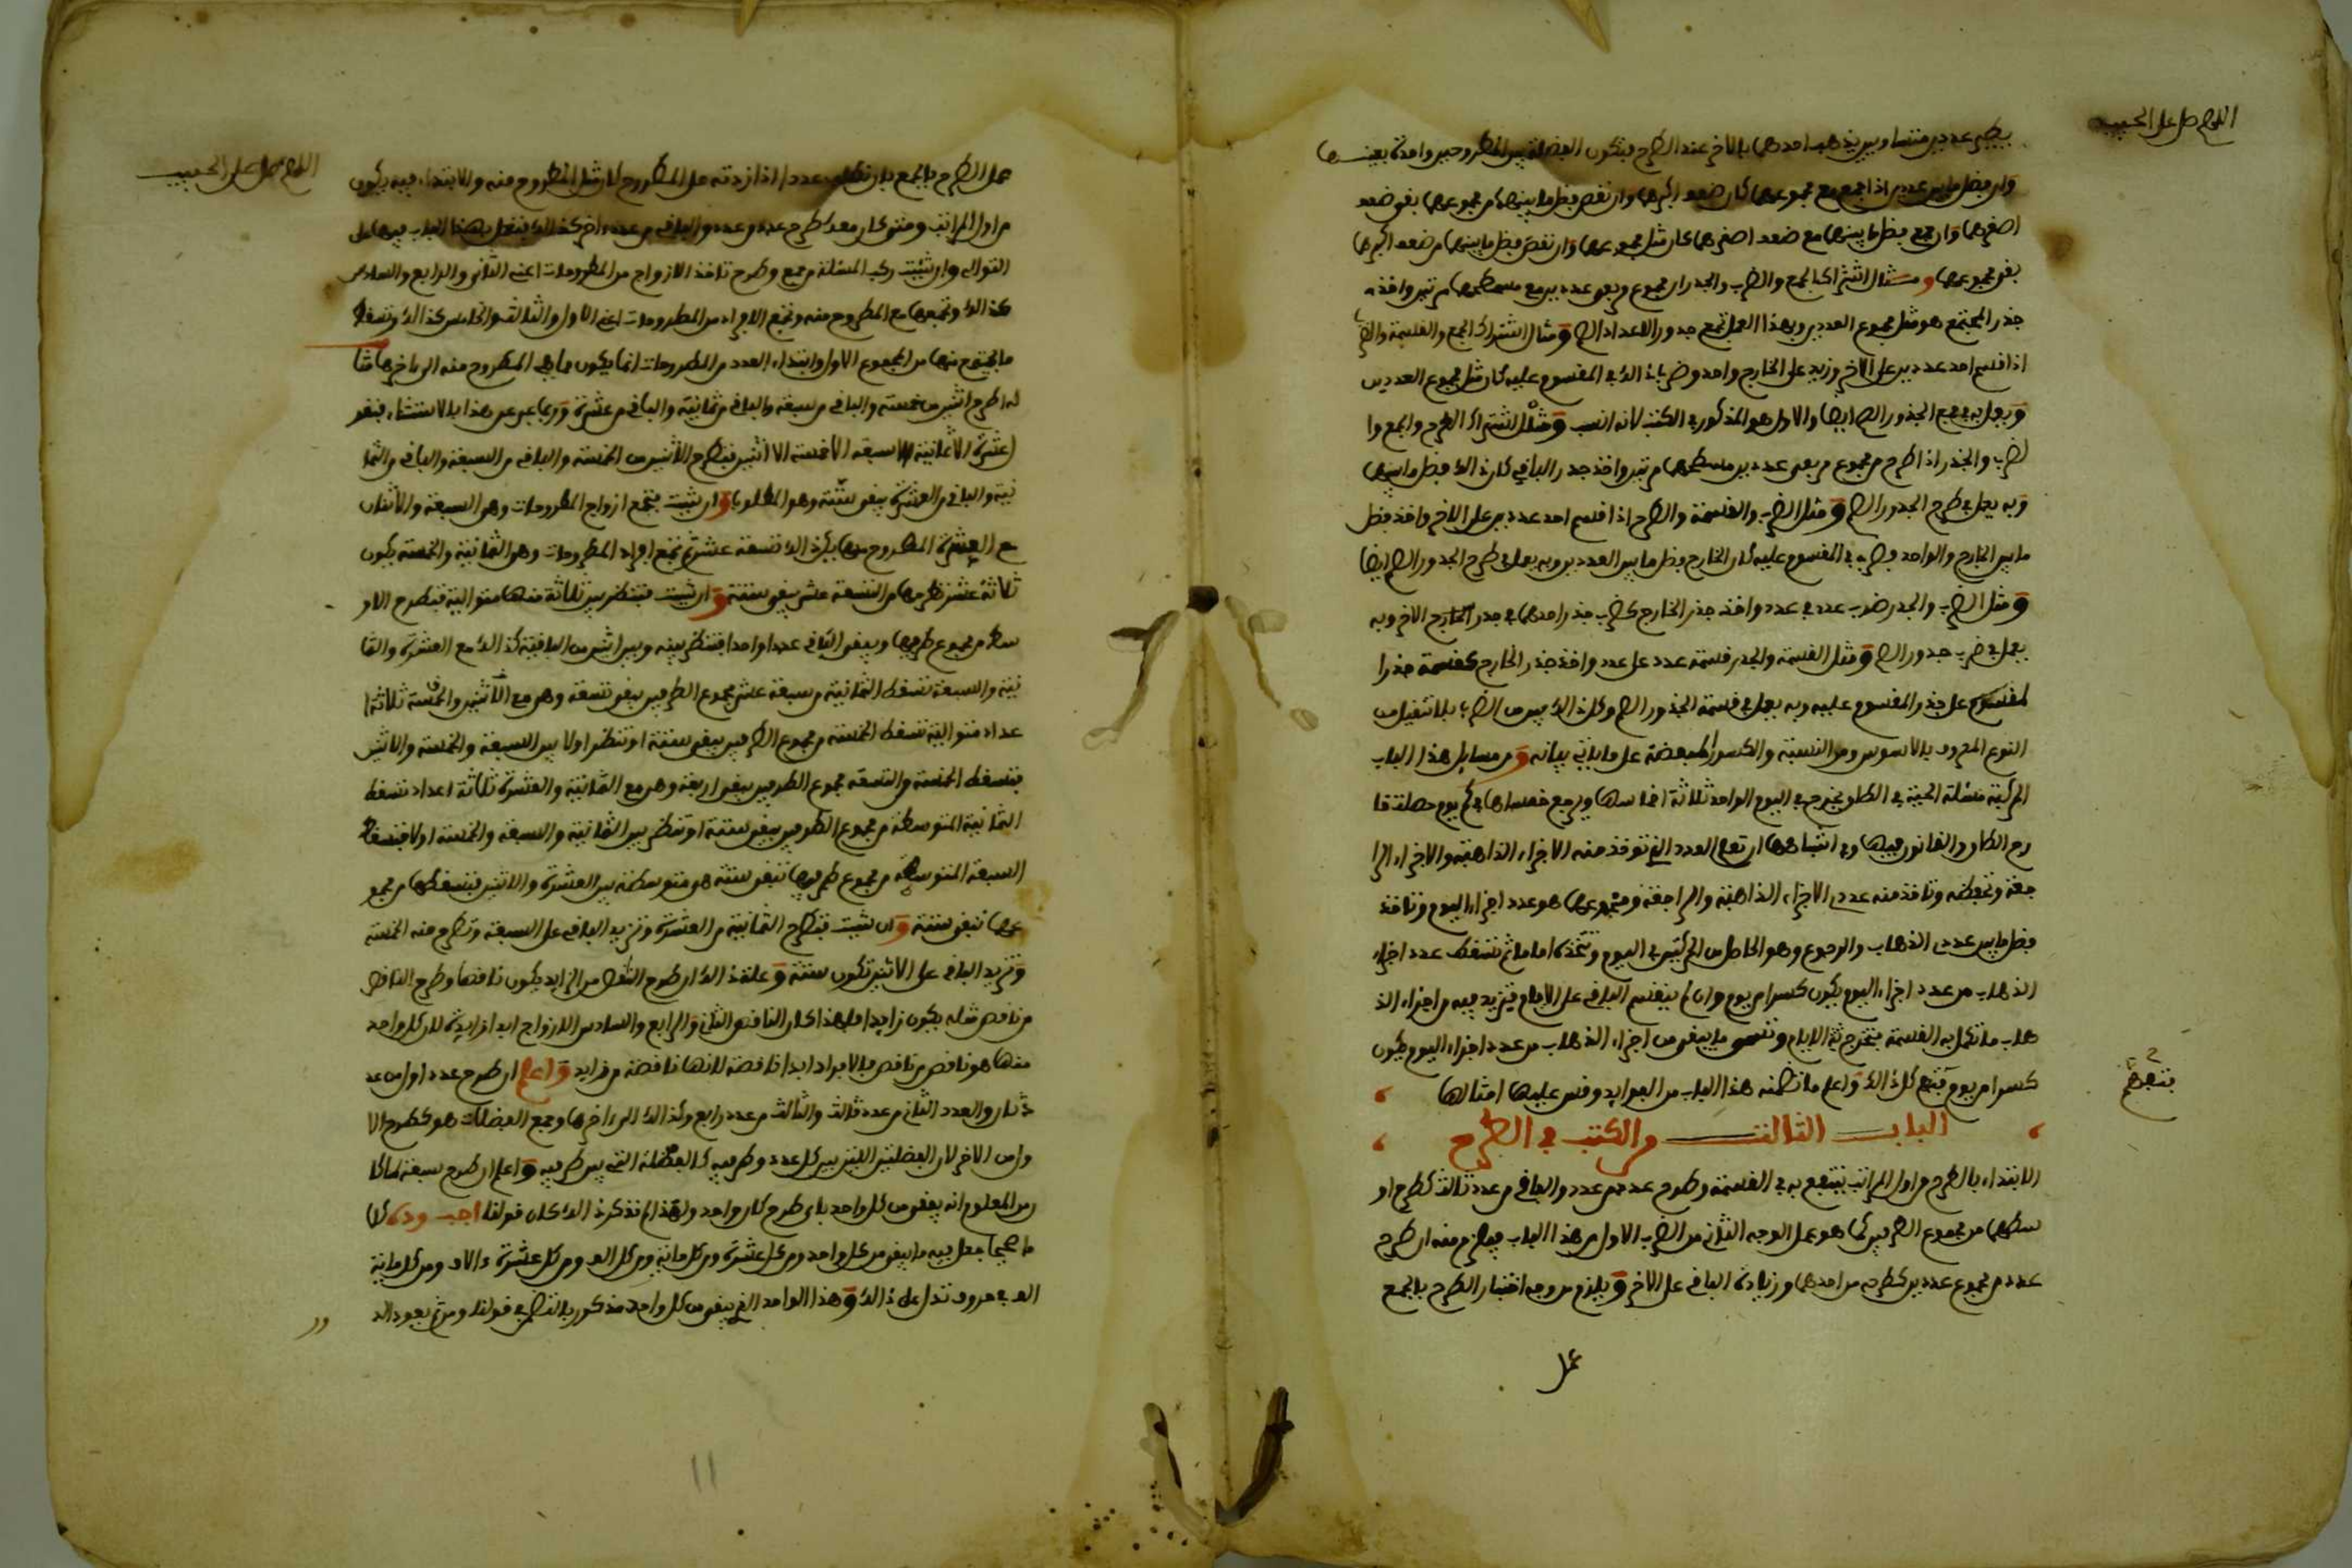 اللهم صل على الحبيب
بطرح عددين متساويين يذهب احدهما بالاخر عند الطرح فتكون الفضلة بين المطروحين واحدة بعينها
وان فضل ما بين عددين اذا جمع مع مجموعهما كان ضعف اكبرهما وان نقص فضل ما بينهما من مجموعهما بقي ضعف
اصغرهما وان جمع فضل ما بينهما مع ضعف اصغرهما كان مثل مجموعهما وان نقص فضل ما بينهما من ضعف اكبرهما
بقي مجموعهما ومثال اشتراك الجمع والضرب والجذر ان مجموع مربعي عددين مع مسطحهما مرتين واخذ
جذر المجتمع هو مثل مجموع العددين وبهذا العمل تجمع جذور الاعداد الصم ومثال اشتراك الجمع والقسمة والضرب
اذا قسم احد عددين على الاخر وزيد على الخارج واحد وضرب ذالك في المقسوم عليه كان مثل مجموع العددين
وبعمل به في جمع الجذور الصم ايضا والاول هو المذكور في الكتب لانه انسب ومثل اشتراك الطرح والجمع وا
لضرب والجذر اذا طرح من مجموع مربعي عددين مسطحهما مرتين واخذ جذر الباقي كان ذالك فضل ما بينهما
وبه يعمل في طرح الجذور الصم ومثل الضرب والقسمة والطرح اذا قسم احد عددين على الاخر واخذ فضل
ما بين الخارج والواحد وضرب في المقسوم عليه كان الخارج فضل ما بين العددين وبه يعمل في طرح الجذور الصم ايضا
ومثل الضرب والجذر ضرب عدد في عدد واخذ جذر الخارج كضرب جذر احدهما في جذر الاخر وبه
يعمل في ضرب جذور الصم ومثل القسمة والجذر قسمة عدد على عدد واخذ جذر الخارج كقسمة جذر ا
لمقسوم على جذر المقسوم عليه وبه يعمل في قسمة الجذور الصم وكل ذالك بين من الضرب
النوع المعروف بالاسوس ومن النسبة والكسور المبعضة على ما ياتي بيانه ومن مسايل هذا الباب
المركبة مسئلة الحية في الطاق يخرج في اليوم الواحد ثلاثة اخماسها ويرجع في كم يوم
والقانون فيها وفي اشباهها ان تضع العدد الذي توخذ منه الاجزاء الذاهبة والاجزاء الرا
جعة وتحفظه وتاخذ منه عدد الاجزاء الذاهبة والراجعة ومجموعهما هو عدد اجزاء اليوم وتاخذ
فضل ما بين عددي الذهاب والرجوع وهو الحاصل من الحركتين في اليوم وتتخذه اماما ثم تسقط عدد اجزاء
الذهاب من عدد اجزاء اليوم يكون كسرا من يوم وان لم ينقسم الباقي على الامام فتزيد فيه من اجزاء الذ
هاب ما تكمل به القسمة فتخرج الايام وتسمي ما بقي من اجزاء الذهاب من عدد اجزاء اليوم يكون
كسرا من يوم فتجمع كل ذالك واعلم ما تضمنه هذا الباب من الفوايد وقس عليها امثالها
الباب الثالث من الكتب في الطرح
الابتداء بالطرح من اول المراتب ينتفع به في القسمة وطرح عدد من عدد والباقي من عدد ثالث كطرح او
سطهما من مجموع الطرفين كما هو عمل الوجه الثاني من الضرب الاول من هذا الباب فيلزم منه ان طرح
عدد من مجموع عددين كطرحه من احدهما وزيادة الباقي على الاخر ويلزم من وجه اختبار الطرح بالجمع
عمل
اللهم صل على الحبيب
عمل الطرح بالجمع بان تطلب عددا اذا زدته على المطروح كان مثل المطروح منه والابتداء فيه يكون
من اول المراتب ومتى كان معك طرح عدد من عدد والباقي من عدد اخر كذالك فتعمل بهذا الباب فيها على
التوالي وان شئت رد المسئلة من جمع وطرح تاخذ الازواج من المطروحات اعني الثاني والرابع والسادس
كذالك وتجمعها مع المطروح منه وتجمع الافراد من المطروحات اعني الاول والثالث والخامس كذالك وتسقط
ما يجتمع منها من المجموع الاول وابتداء العدد من المطروحات انما يكون مما يلي المطروح منه الى اخرها مثا
له اطرح اثنين من خمسة والباقي من سبعة والباقي من ثمانية والباقي من عشرة وربما عبر عن هذا بالاستثناء فتقو
ل عشرة الا ثمانية الا سبعة الا خمسة الا اثنين فتطرح الاثنين من الخمسة والباقي من السبعة والباقي من الثما
نية والباقي من العشرة يبقى ستة وهو المطلوب وان شئت فتجمع ازواج المطروحات وهي السبعة والاثنان
مع العشرة المطروح منها يكن ذالك تسعة عشر ثم تجمع افراد المطروحات وهي الثمانية والخمسة يكون
ثلاثة عشر تطرحها من التسعة عشر يبقى ستة وان شئت فتنظر بين ثلاثة منها متوالية فتطرح الاو
سط من مجموع طرفيها ويبقى الباقي عددا واحدا فتنظر بينه وبين اثنين من الباقية كذالك مع العشرة والثما
نية والسبعة تسقط الثمانية من سبعة عشر مجموع الطرفين يبقى تسعة وهي مع الاثنين والخمسة ثلاثة ا
عداد متوالية تسقط الخمسة من مجموع الطرفين يبقى ستة او تنظر اولا بين السبعة والخمسة والاثنين
فتسقط الخمسة من التسعة مجموع الطرفين يبقى اربعة وهي مع الثمانية والعشرة ثلاثة اعداد تسقط
الثمانية المتوسطة من مجموع الطرفين يبقى ستة او تنظر بين الثمانية والسبعة والخمسة اولا فتسقط
السبعة المتوسطة من مجموع طرفيها تبقى ستة هي متوسطة بين العشرة والاثنين فتسقطها من مجمو
عهما تبقى ستة وان شئت فتطرح الثمانية من العشرة وتزيد الباقي على السبعة وتطرح منه الخمسة
وتزيد الباقي على الاثنين تكون ستة وعلة ذالك ان طرح الناقص من الزايد يكون ناقصا وطرح الناقص
من ناقص مثله يكون زايدا فلهذا كان الناقص الثاني والرابع والسادس الازواج ابدا زايدة لان كل واحد
منها هو ناقص من ناقص والافراد ابدا ناقصة لانها ناقصة من زايد واعلم ان طرح عدد اول من عد
د ثان والعدد الثاني من عدد ثالث والثالث من عدد رابع وكذالك الى اخرها وجمع الفضلات هو كطرح الا
ول من الاخر لان الفضلتين اللتين بين كل عدد وطرفيه كالفضلة التي بين طرفيه واعلم ان طرح سبعة لما كا
ن من المعلوم انه يبقى من كل واحد باي طرح كان واحد ولهذا لم نذكر ذالك كان قولنا اجب ودة كلا
ما صحيحا يعمل فيه ما يبقى من كل واحد ومن كل عشرة ومن كل ماية ومن كل الف ومن كل عشرة ءالاف ومن كل ماية
الف في حروف تدل على ذالك وهذا الواحد الذي يبقى من كل واحد مذكور بالتضمن في قولنا ومن ثم يعود الد
ور
11